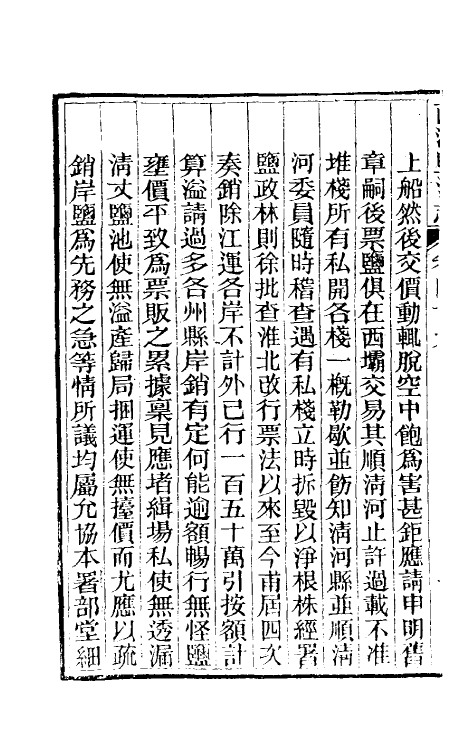 上船然後交價動輒脫空中飽爲害甚鉅應請申明舊
章嗣後票鹽俱在西壩交易其順淸河止許過載不准
堆棧所有私開各棧一槪勒歇並飭知淸河縣並順淸
河委員隨時稽查遇有私棧立時拆毀以淨根株經署
鹽政林則徐批查淮北改行票法以來至今甫屆四次
奏銷除江運各岸不計外已行一百五十萬引按額計
算溢請過多各州縣岸銷有定何能逾額暢行無怪鹽
壅價平致爲票販之累據稟見應堵緝場私使無透漏
淸丈鹽池使無溢產歸局捆運使無擡價而尤應以疏
銷岸鹽爲先務之急等情所議均屬允協本署部堂細